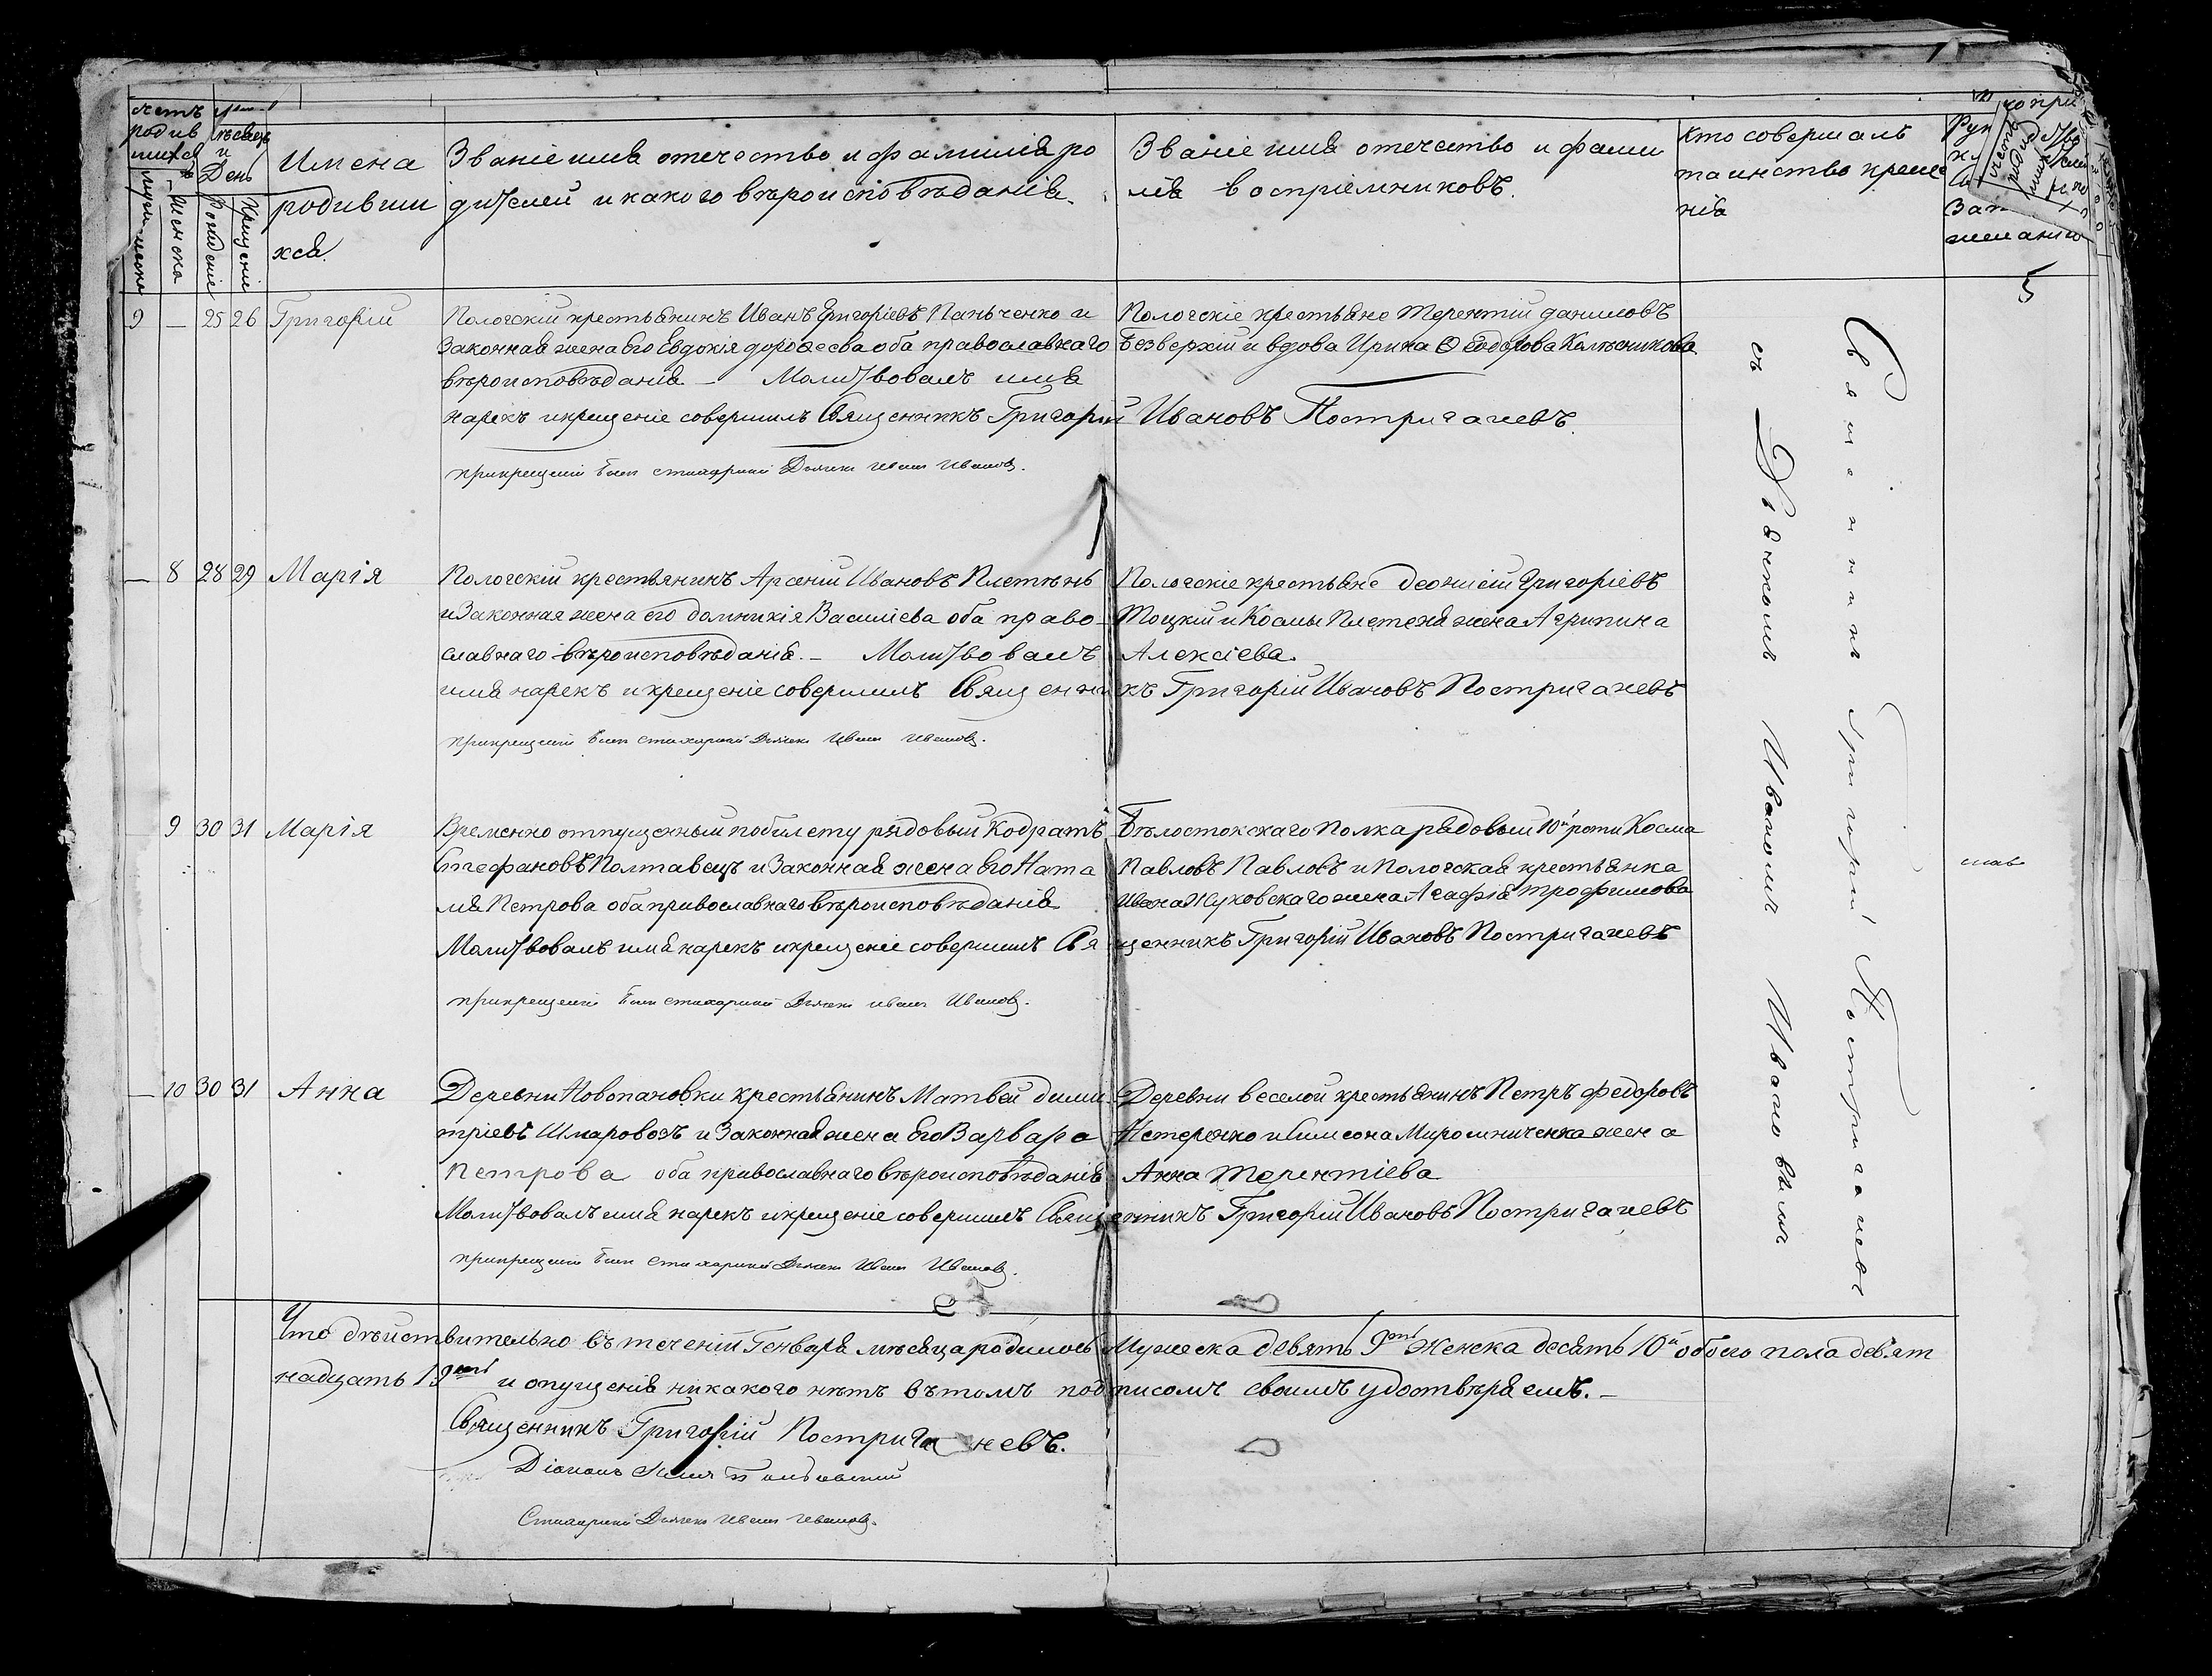 счетъ родившихся
мужеска
женска
мѣсяцъ и День
рожденіе
крещеніе
Имена
родивши
хся
Званіе имя отечество и фамилія ро
дителей и какого вѣроисповѣданія.
Званіе имя отечество и фами
лія воспріемниковъ.
Кто совершалъ
таинство креще
нія
5
9 — 25 26 Григорій
Пологскій крестьянинъ Иванъ Григоріевъ Панченко и
Законная жена Его Евдокія дороѳеева оба православнаго
вѣроисповѣданія — Молитвовалъ имя
нарекъ и крещеніе совершилъ Священникъ Григорій Ивановъ Постригачевъ.
при крещеніи былъ стихарный Дьячекъ Иванъ Ивановъ.
Пологскіе крестьяне Терентій даниловъ
Безверхій и вдова Ирина Ѳеодорова Колѣсникова
— 8 28 29 Марія
Пологскій крестьянинъ Арсеній Ивановъ Плетѣнь
и Законная жена его домникія Василіева оба право-
славнаго вѣроисповѣданія. — Молитвовалъ
имя нарекъ и крещеніе совершилъ Священникъ Григорій Ивановъ Постригачевъ
при крещеніи былъ стихарный Дьячекъ Иванъ Ивановъ.
Пологскіе крестьяне деонисій Григоріевъ
Тоцкій и Космы Плетеня жена Агрипина
Алексіева.
9 30 31 Марія
Временно отпущенный по билету рядовый Кодратъ
Стефановъ Полтавецъ и Законная жена Его Ната
лія Петрова оба православнаго вѣроисповѣданія
Молитвовалъ имя нарекъ и крещеніе совершилъ Священникъ Григорій Ивановъ Постригачевъ
при крещеніи былъ стихарный Дьячекъ Иванъ Ивановъ.
Бѣлостокскаго Полка рядовый 10й роты Косма
Павловъ Павловъ и Пологская крестьянка
Ивана Жуковскаго жена Агафія трофимова
— 10 30 31 Анна
Деревни Новопановки крестьянинъ Матвей дими
тріевъ Шмаровозъ и Законная жена Его Варвара
Петрова оба православнаго вѣроисповѣданія
Молитвовалъ имя нарекъ и крещеніе совершилъ Священникъ Григорій Ивановъ Постригачевъ
при крещеніи былъ стихарный Дьячекъ Иванъ Ивановъ.
Деревни веселой крестьянинъ Петръ федоровъ
Нетеренко и Симеона Мирошниченка жена
Анна Терентіева
Священникъ Григорій Постригачевъ
съ Дьячкомъ Иваномъ Ивановымъ
Что дѣйствительно въ теченіи Генваря мѣсяца родилось Мужеска девять 9ть Женска десять 10й обоего пола девят
надцать 19ть и опущенія никакого нѣтъ въ томъ подписомъ своимъ удоствѣряемъ. —
Священникъ Григорій Постригачевъ.
Діаконъ
Стихарный Дьячекъ Иванъ Ивановъ.